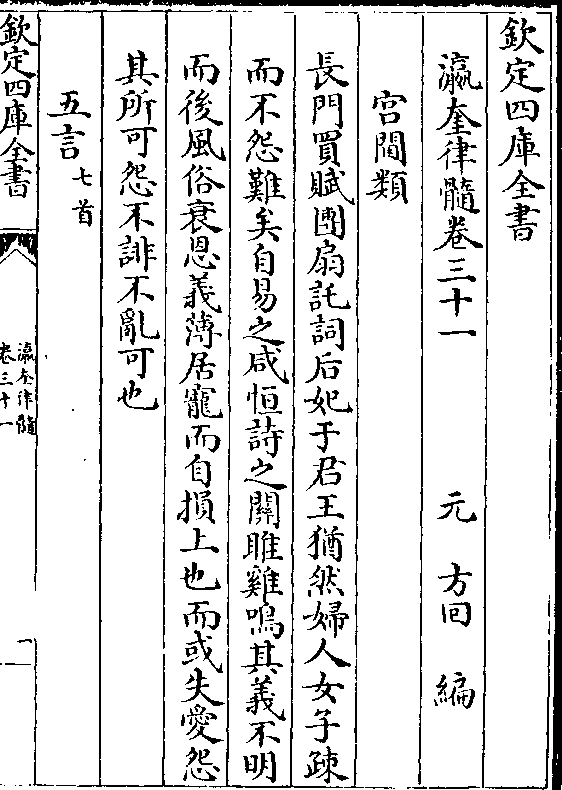 欽定四庫全書
瀛奎律髓卷三十一　元　方回　編
宮閫類
長門買賦團扇託詞后妃于君王猶然婦人女子疎
而不怨難矣自易之咸恒詩之關雎雞鳴其義不明
而後風俗衰恩義薄居寵而自損上也而或失愛怨
其所可怨不誹不亂可也
五言七首
欽定四庫全書
瀛奎律髓
卷三十一
一